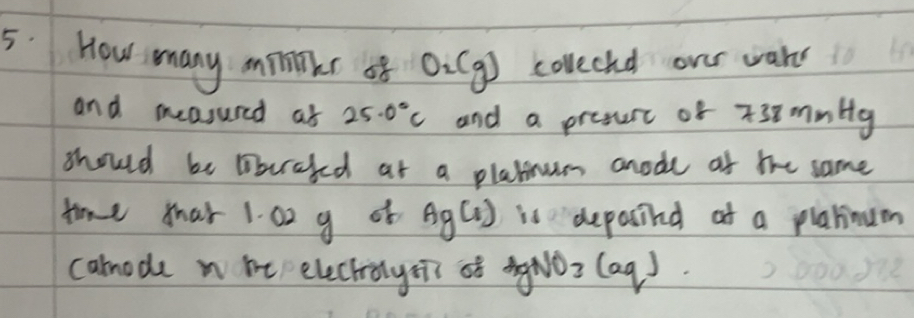 5. How many milliliter of O₂(g) collected over water to
and measured at 25.0°C and a pressure of 738 mmHg
should be liberated at a platinum anode at the same
time that 1.02 g of Ag(s) is deposited at a platinum
cathode in the electrolysis of AgNO₃ (aq).